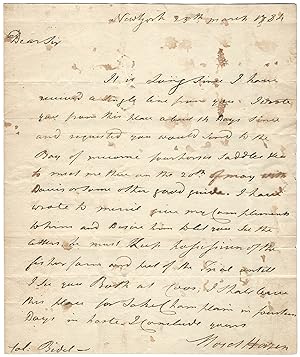 New York 28th march 1784
Dear Sir
It is Long Since I have
received a Single line from you. I wrote
you from this place about 14 Days Since
and requested you would Send to the
Bay of four horses Saddles &c
to meet me there on the 20th of may with
Davis or Some other good guide. I have
wrote to give my Complements
to him and Desire him to let you See the
letter he must keep possession of the
farm and Trial untill
I See you Both at Coos, I shall leave
this place for Lake Champlain in fourteen
Days in haste I Conclude yours
Moses Hazen
Col. Bidel